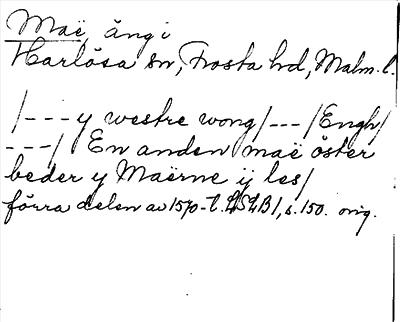 Maë, äng i
Harlösa sn, Frosta hd, Malm. l.
/--- y westre wong/---/Engh/
---/ En anden maë öster
beder y Maërne ij les/
förra delen av 1570-t. LSLB 1, s. 150. orig.